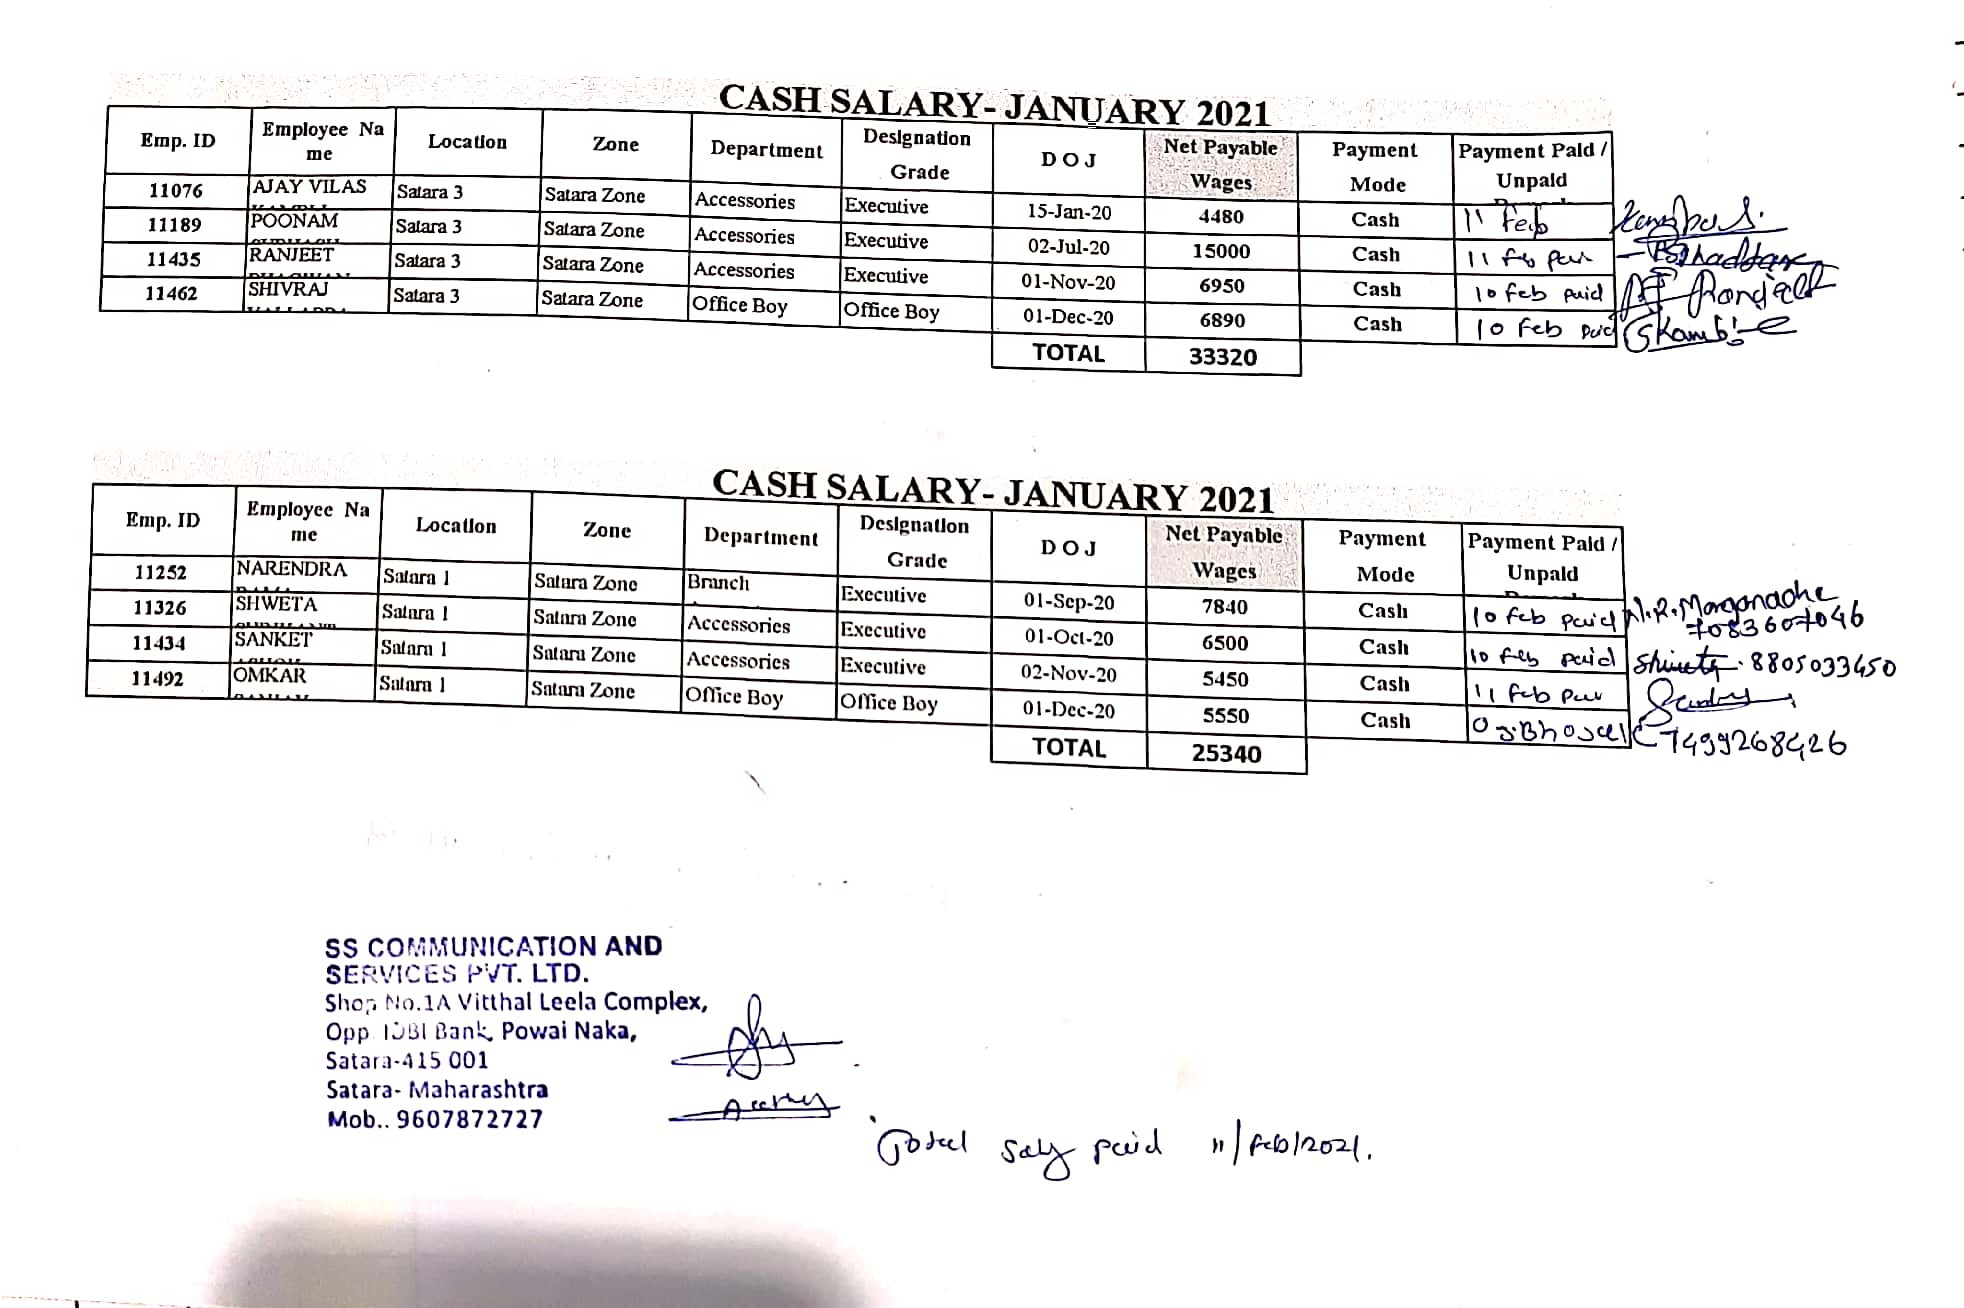 CASH SALARY- JANUARY 2021
Emp. ID Employee Na me Location Zone Department Designation Grade D O J Net Payable Wages Payment Mode Payment Paid / Unpaid
11076 AJAY VILAS Satara 3 Satara Zone Accessories Executive 15-Jan-20 4480 Cash 11 Feb
11189 POONAM Satara 3 Satara Zone Accessories Executive 02-Jul-20 15000 Cash 11 Feb
11435 RANJEET Satara 3 Satara Zone Accessories Executive 01-Nov-20 6950 Cash 10 Feb paid
11462 SHIVRAJ Satara 3 Satara Zone Office Boy Office Boy 01-Dec-20 6890 Cash 10 Feb paid
TOTAL 33320
CASH SALARY- JANUARY 2021
Emp. ID Employee Na me Location Zone Department Designation Grade D O J Net Payable Wages Payment Mode Payment Paid / Unpaid
11252 NARENDRA Satara 1 Satara Zone Branch Executive 01-Sep-20 7840 Cash 10 Feb paid 7083607046
11326 SHWETA Satara 1 Satara Zone Accessories Executive 01-Oct-20 6500 Cash 10 Feb paid 8805033450
11434 SANKET Satara 1 Satara Zone Accessories Executive 02-Nov-20 5450 Cash 11 Feb
11492 OMKAR Satara 1 Satara Zone Office Boy Office Boy 01-Dec-20 5550 Cash 7499268426
TOTAL 25340
SS COMMUNICATION AND
SERVICES PVT. LTD.
Shop No.1A Vitthal Leela Complex,
Opp. IDBI Bank, Powai Naka,
Satara-415 001
Satara- Maharashtra
Mob.. 9607872727
paid 11/Feb/2021.